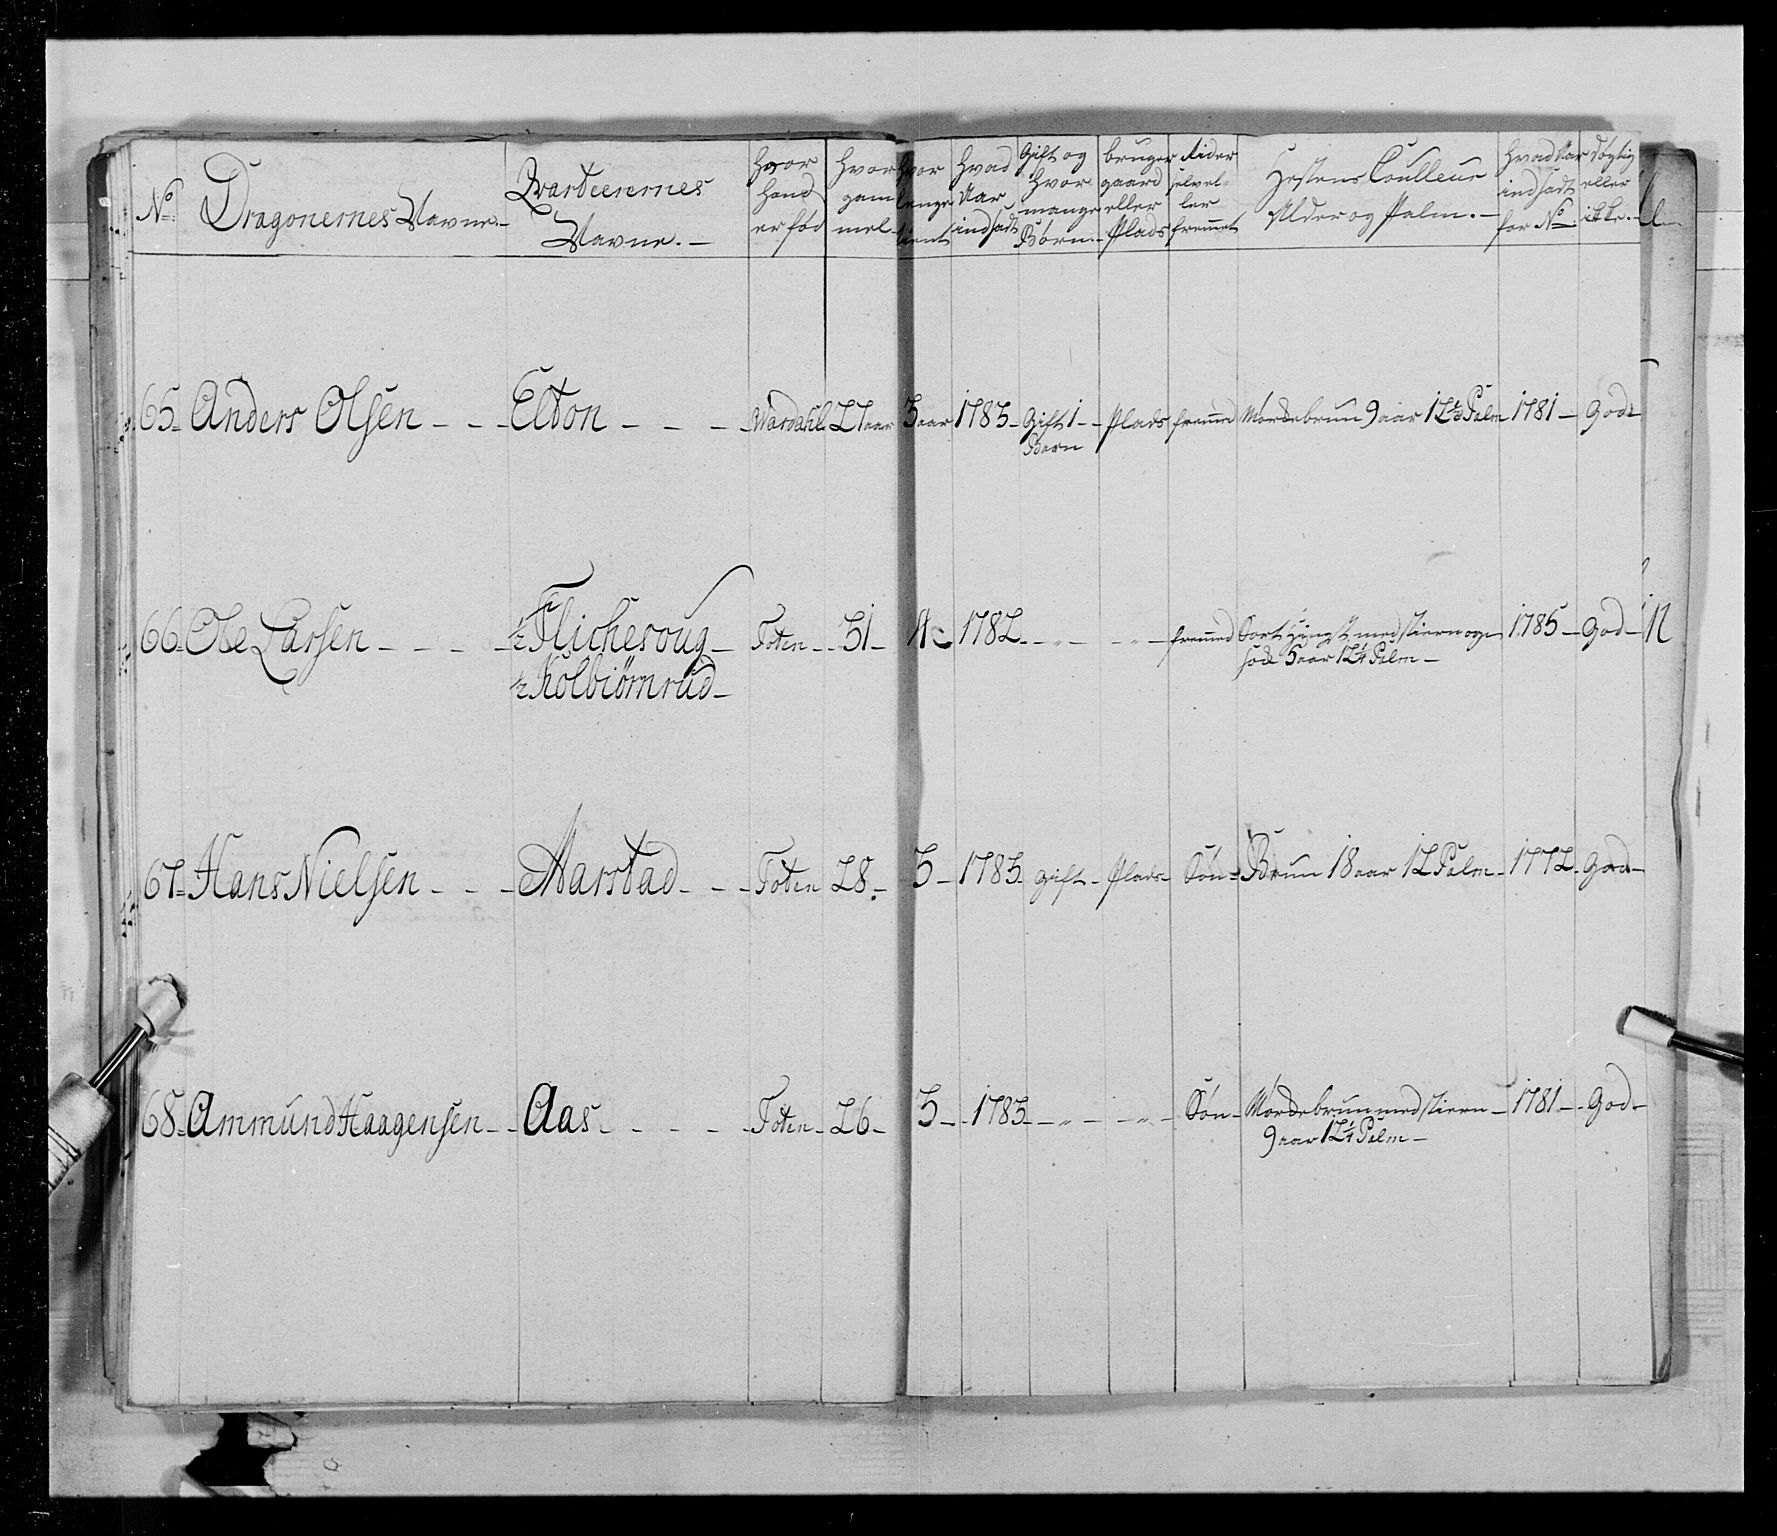 No
Dragonernes Navne.-
Qvarteerernes
Navne.-
hvor
hand
er fød
hvor
gam
mel.
hvor
lenge
tient
hvad
Aar
indsadt
Gift og
hvor
mange
Børn.-
bruger
gaard
eller
Plads
Rider
selv el-
ler
fremet
Hestens Coulleur
Alder og Palm.-
hvad Aar
indsadt
for No
døgtig
eller
ikke.-
65. Anders Olsen - - - Elton - - - Wardahl 27 aar 3 aar 1783. Gift 1 - - Plads fremed Mordebrun 9 aar 12½ Palm 1781 - God-
Børn
66. Ole Larsen - - - - ½ Flichesoug - Toten - 31 - 4 - 1782. - „ - - „ - fremmed Sort Hingst med stiern og 1785 - God -
½ Kolbiørnrud - sock 5 aar 12¼ Palm -
67. Hans Nielsen - - - Aarstad - - - Toten 28. 3 - 1783. Gift - Plads - Søn - Brun 18 aar 12 Palm - 1772. God -
68. Ammund Haagensen - - Aas - - - - - Toten - 26 - 3 - - 1783 - - „ - - „ - Søn - Mordebrun med stiern - 1781 - - God -
9 aar 12¼ Palm -